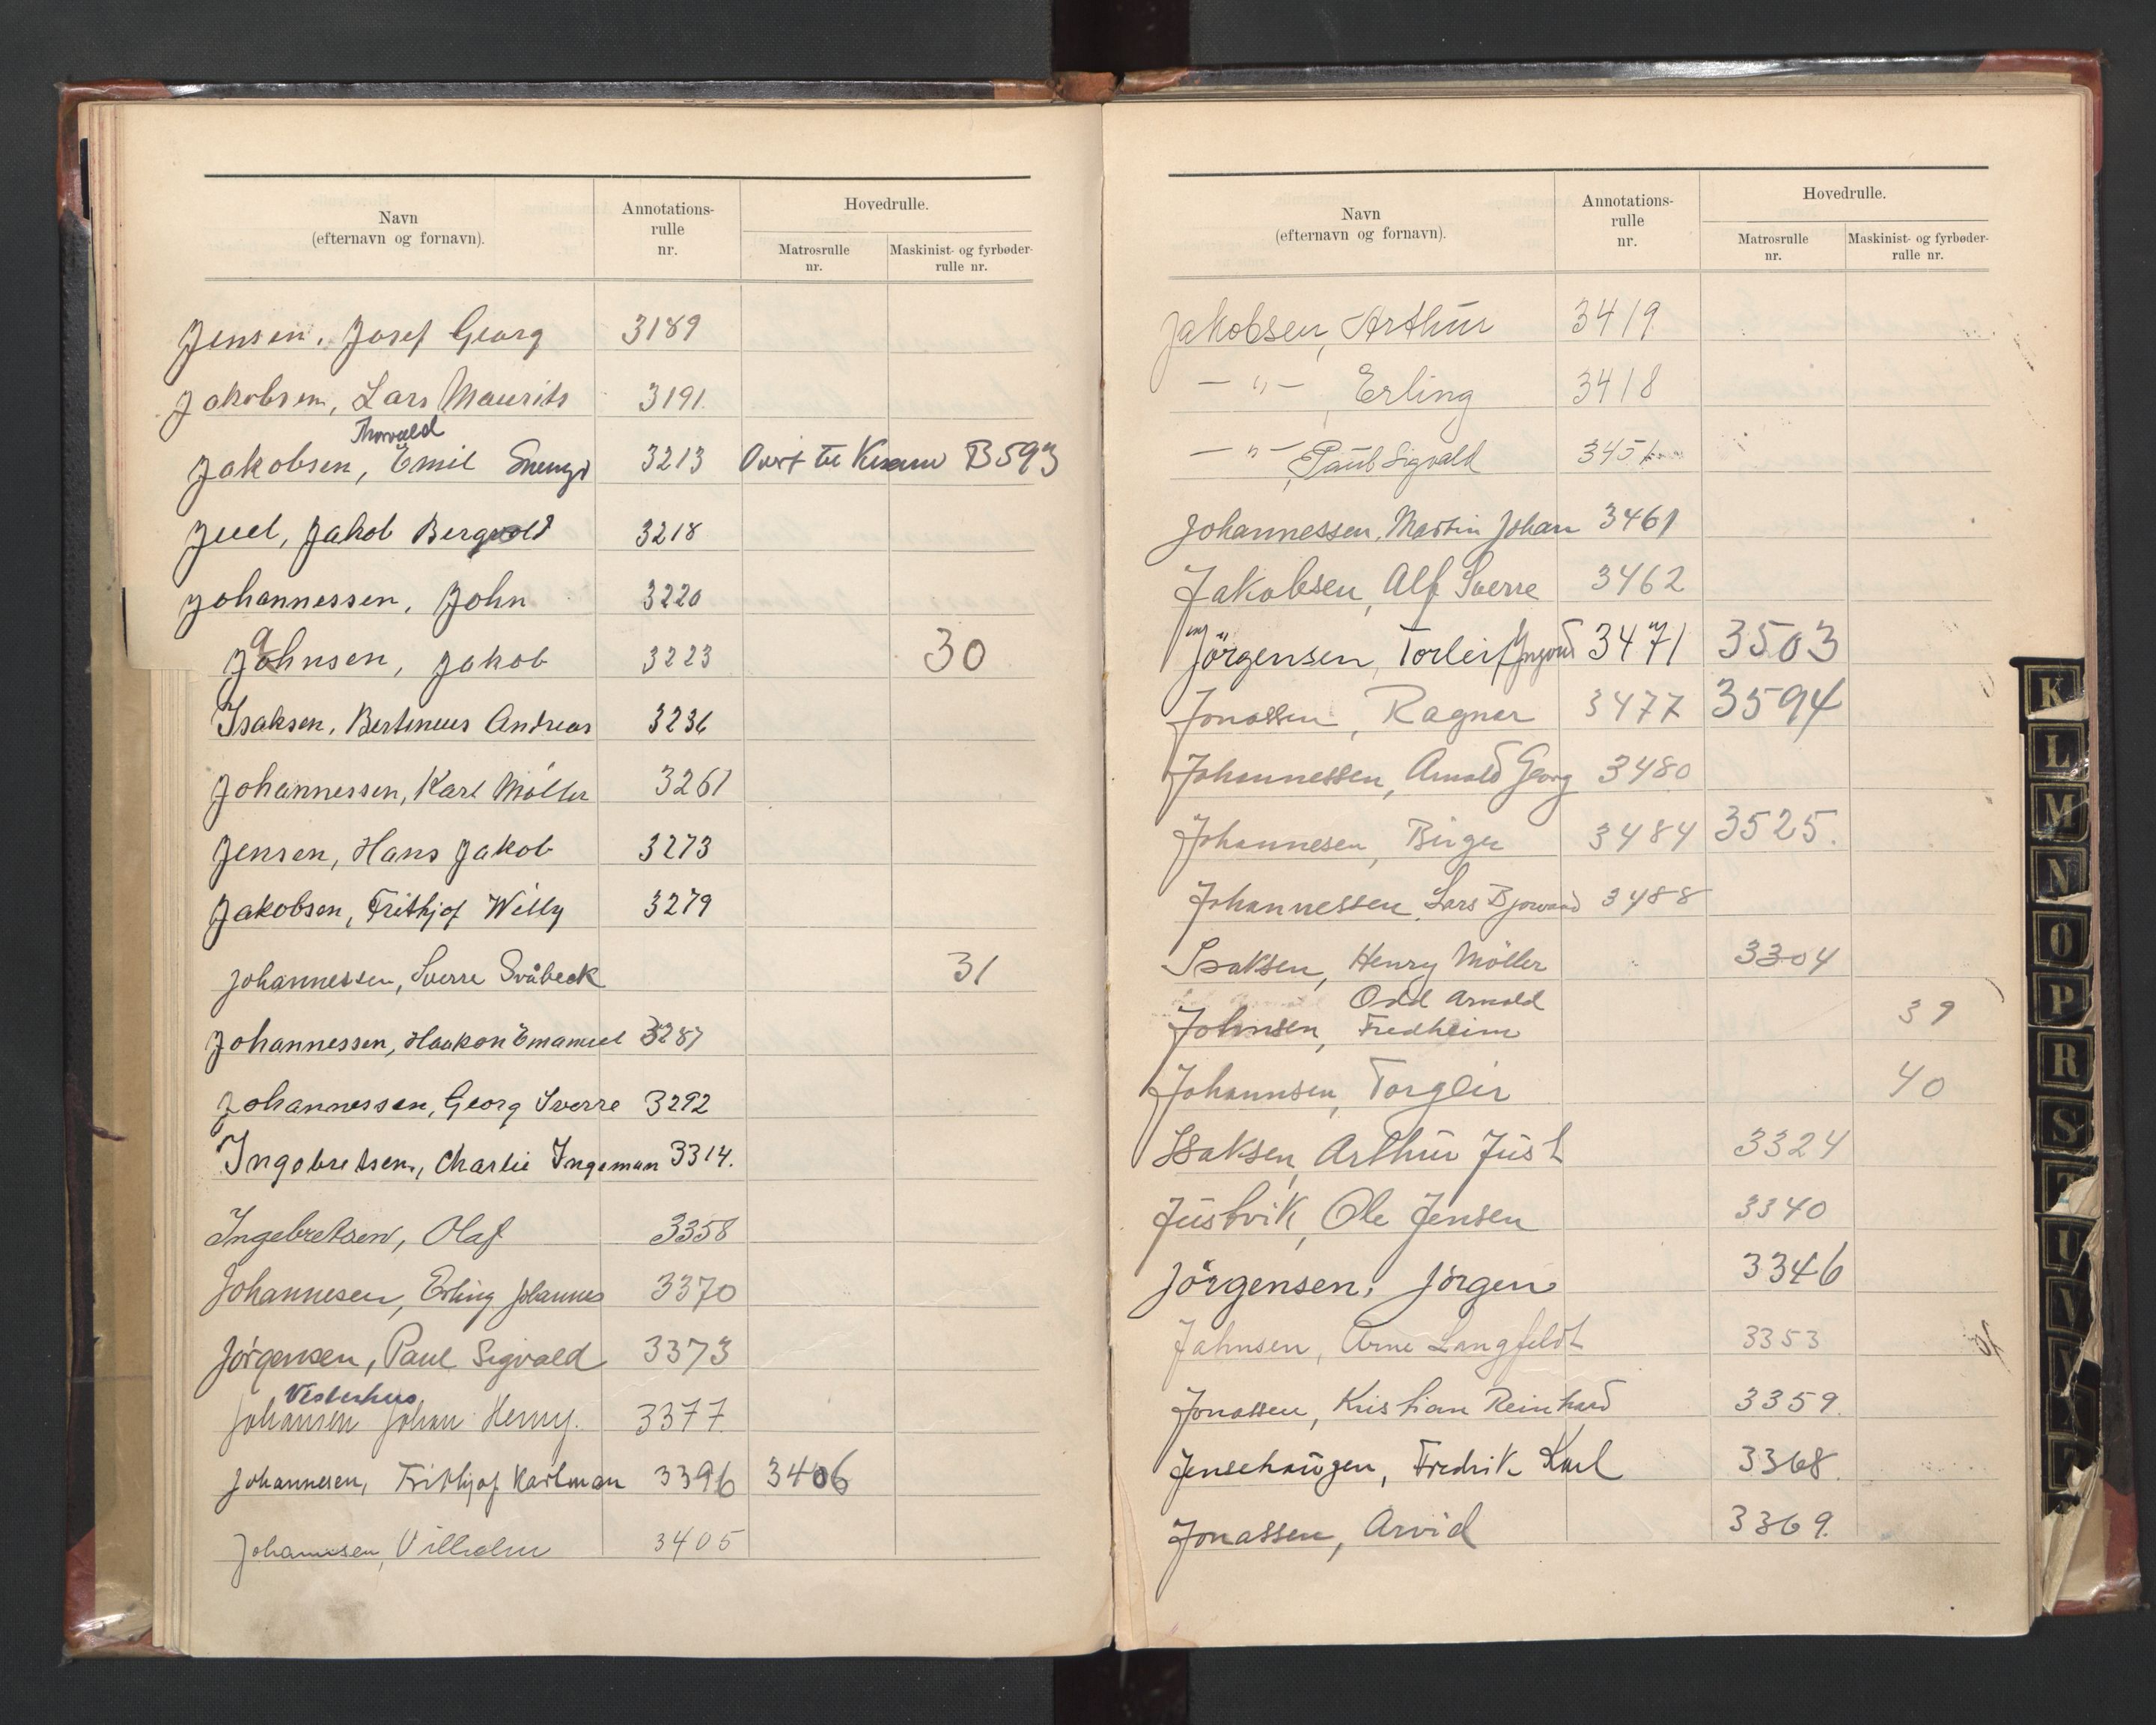 Navn
(efternavn og fornavn).
Annotations-
rulle
nr.
Hovedrulle.
Matrosrulle
nr.
Maskinist- og fyrbøder-
rulle nr.
Jensen, Josef Georg 3189
Jakobsen, Lars Maurits 3191.
Thorvald
Jakobsen, Emil 3213 Overf til B 593
Juel, Jakob Bergvold 3218
Johannessen, John 3220
Jahnsen, Jakob 3223 30
Isaksen, Bertineus Andreas 3236
Johannessen, Karl Möller 3261
Jensen, Hans Jakob 3273
Jakobsen, Frithjof Willy 3279
Johannessen, Sverre Svåbeck 31
Johannessen, Haakon Emanuel 3287
Johannessen, Georg Sverre 3292
Ingebretsen, Charlie Ingeman 3314.
Ingebretsen, Olaf 3358
Johannesen, Erling Johannes 3370
Jörgensen, Paul Sigvald 3373
Vesterhus
Johansen Johan Henny. 3377.
Johannesen, Frithjof Karlman 3396 3406
Johannsen, Vilhelm 3405
Navn
(efternavn og fornavn).
Annotations-
rulle
nr.
Hovedrulle.
Matrosrulle
nr.
Maskinist- og fyrbøder-
rulle nr.
Jakobsen, Arthur 3419
— " — , Erling 3418
— " — , Paul Sigvald 3451
Johannessen, Martin Johan 3461
Jakobsen, Alf Sverre 3462
Jörgensen, Torleif Ingvald 3471 3503
Jonassen, Ragnar 3477 3594
Johannessen, Arnold Georg 3480
Johannesen, Birger 3484 3525.
Johannessen, Lars 3488
Isaksen, Henry Möller 3304
Odd Arnold
Johnsen, Fredheim 39
Johannsen, Torgeir 40
Isaksen, Arthur Just 3324
Justvik, Ole Jensen 3340
Jörgensen, Jörgen 3346
Jahnsen, Arne Langfeldt 3353
Jonassen, Kristian Reinhard 3359.
Jensehaugen, Fredrik Karl 3368.
Jonassen, Arvid 3369.
K
L
M
N
O
P
R
S
T
U
V